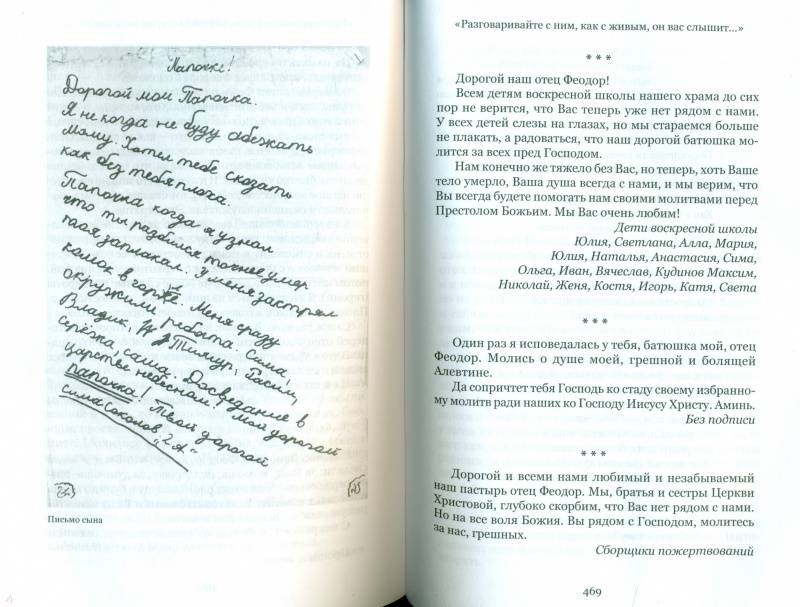 Папочке!
Дорогой мой Папочка.
Я не когда не буду абежать
Маму. Хотел тебе сказать
как без тебя плоха.
Папочка когда я узнал
что ты разбился точнее умер
я заплакал. У меня застрял
камок в горже. Меня сразу
окружили ребята. Сима,
Владик, Тимур, Гасим,
Серёжка, саша. Досведание в
царстве небесном! Мой дорогой
папочка! Твой дорогой
Сима Соколов „2 А"
Письмо сына
«Разговаривайте с ним, как с живым, он вас слышит...»
* * *
Дорогой наш отец Феодор!
Всем детям воскресной школы нашего храма до сих
пор не верится, что Вас теперь уже нет рядом с нами.
У всех детей слезы на глазах, но мы стараемся больше
не плакать, а радоваться, что наш дорогой батюшка мо-
лится за всех пред Господом.
Нам конечно же тяжело без Вас, но теперь, хоть Ваше
тело умерло, Ваша душа всегда с нами, и мы верим, что
Вы всегда будете помогать нам своими молитвами перед
Престолом Божьим. Мы Вас очень любим!
Дети воскресной школы
Юлия, Светлана, Алла, Мария,
Юлия, Наталья, Анастасия, Сима,
Ольга, Иван, Вячеслав, Кудинов Максим,
Николай, Женя, Костя, Игорь, Катя, Света
* * *
Один раз я исповедалась у тебя, батюшка мой, отец
Феодор. Молись о душе моей, грешной и болящей
Алевтине.
Да сопричтет тебя Господь ко стаду своему избранно-
му молитв ради наших ко Господу Иисусу Христу. Аминь.
Без подписи
* * *
Дорогой и всеми нами любимый и незабываемый
наш пастырь отец Феодор. Мы, братья и сестры Церкви
Христовой, глубоко скорбим, что Вас нет рядом с нами.
Но на все воля Божия. Вы рядом с Господом, молитесь
за нас, грешных.
Сборщики пожертвований
469